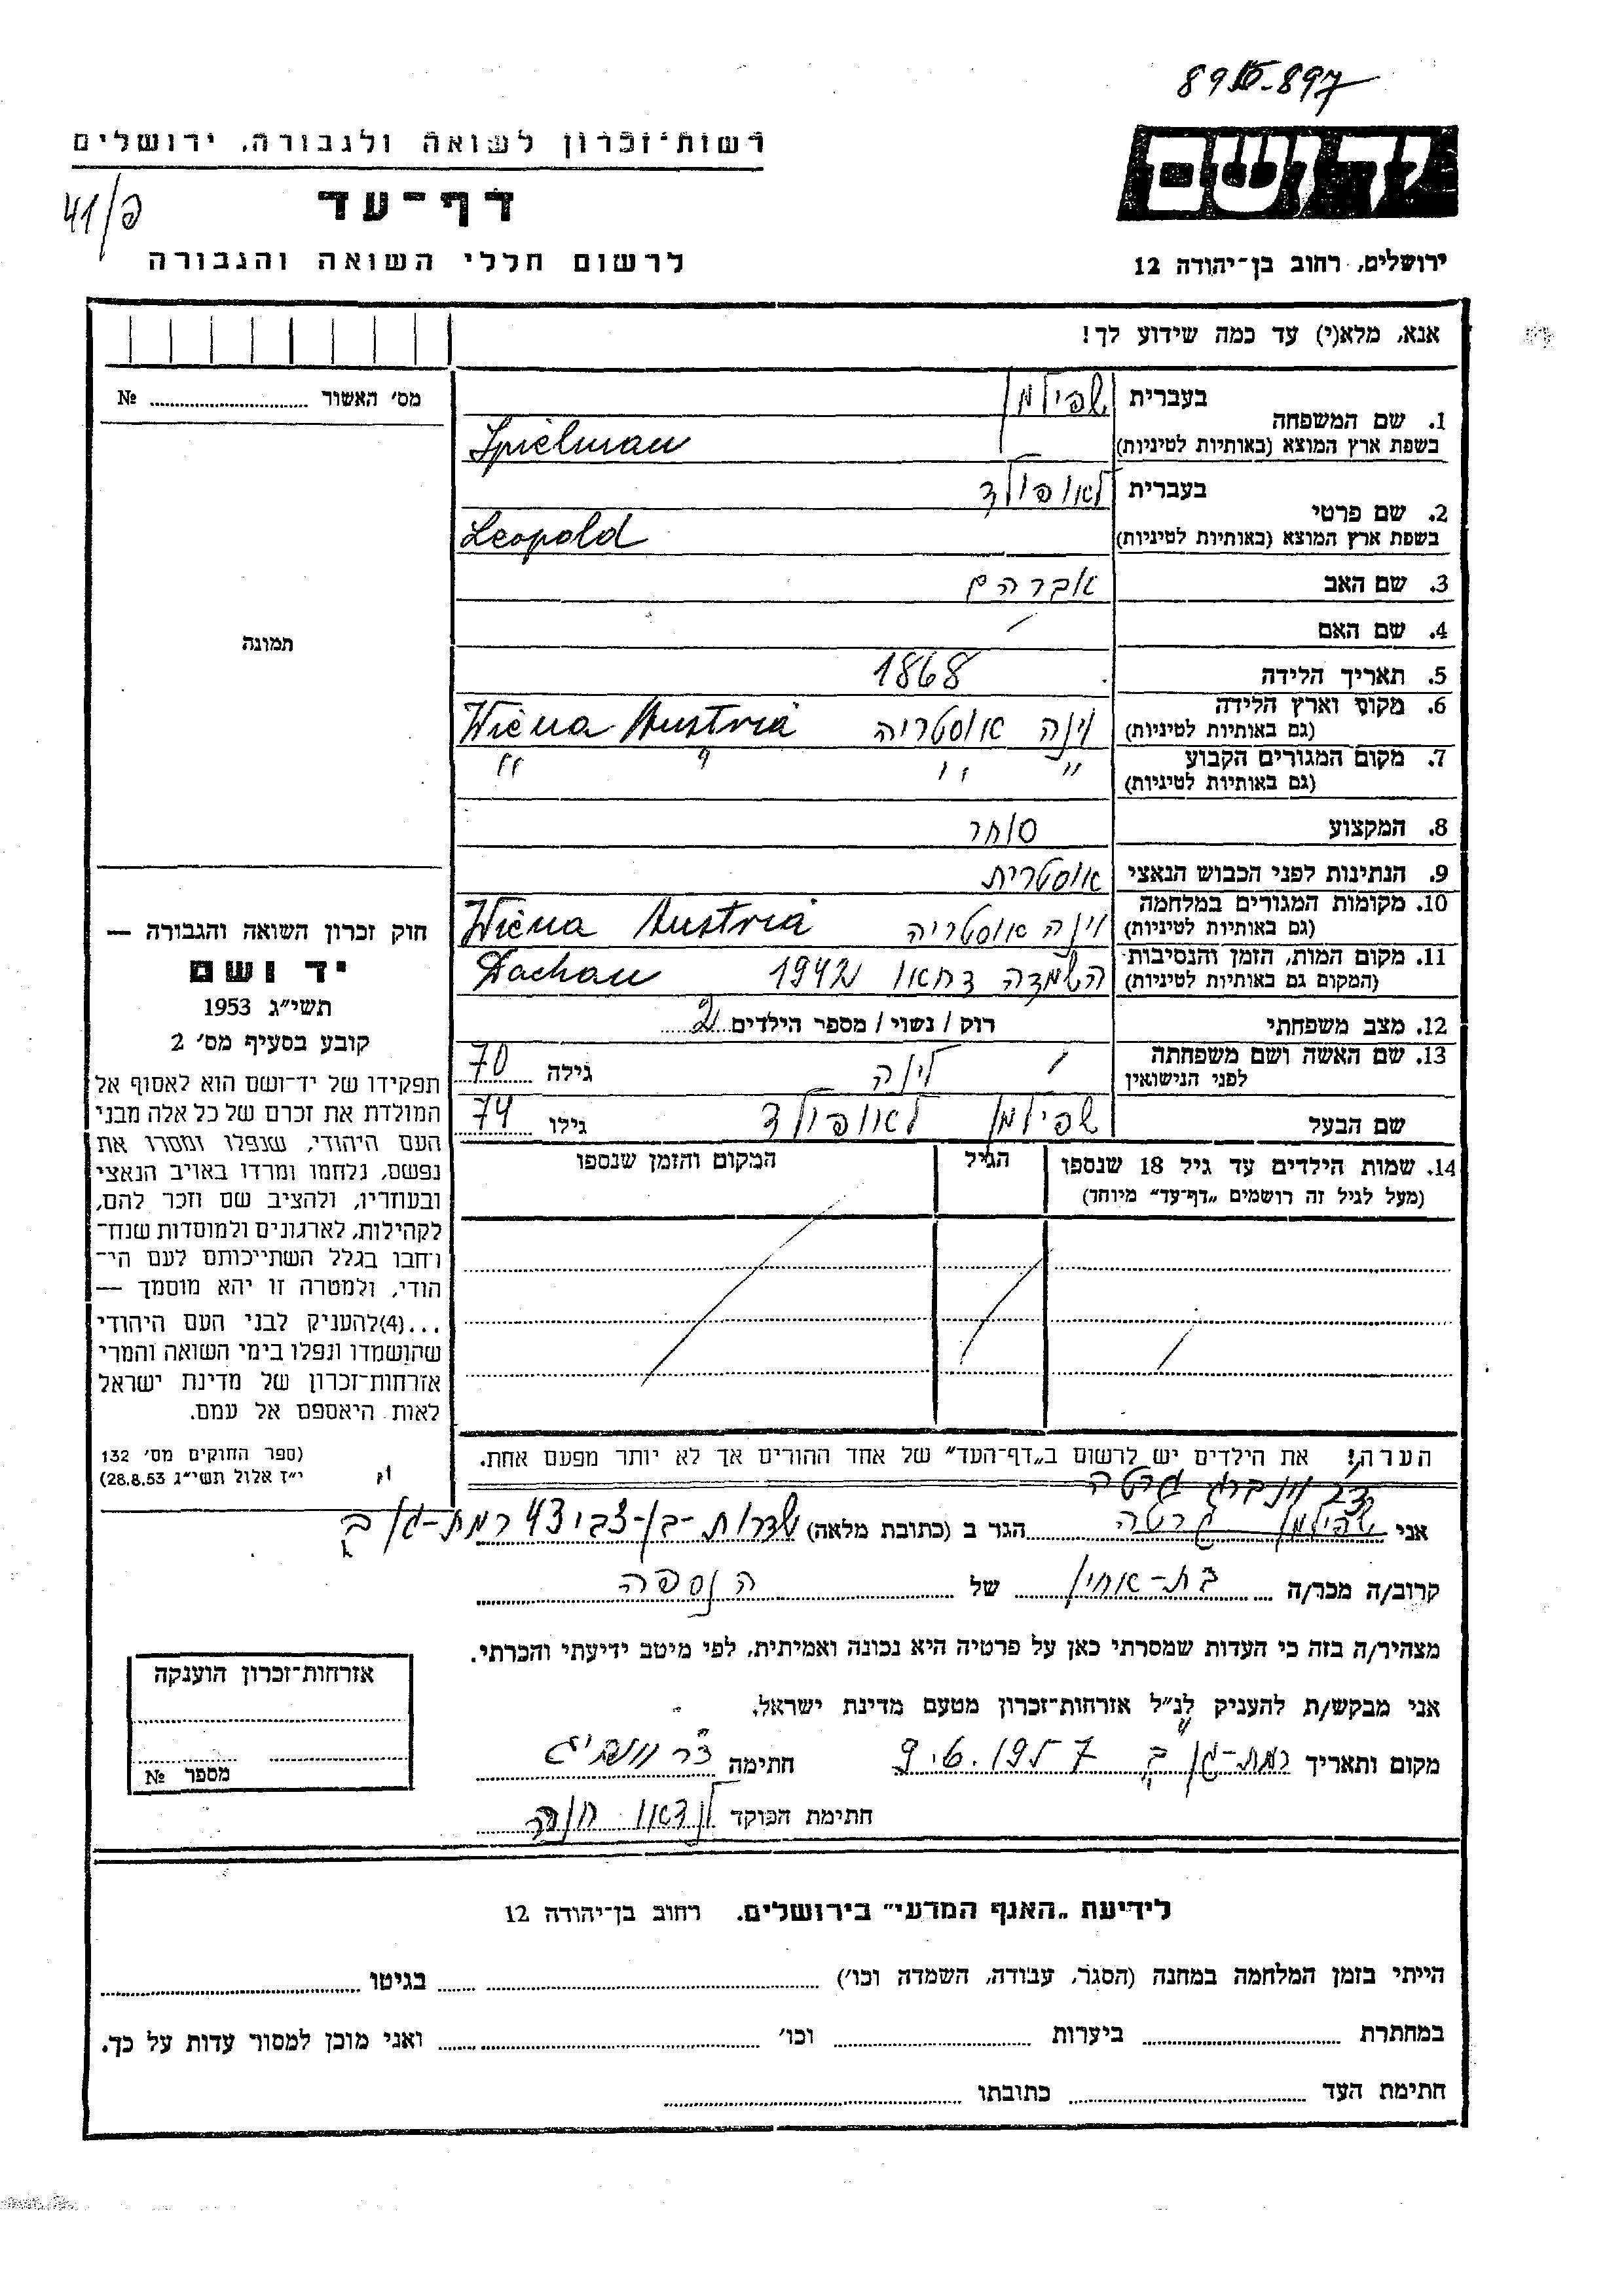 897
רשות־זכרון לשואה ולגבורה, ירושלים
יד ושם
דף־עד
41/פ
לרשום חללי השואה והגבורה
ירושלים, רחוב בן־יהודה 12
אנא, מלא(י) עד כמה שידוע לך!
מס׳ האשור ........ №
תמונה
1. שם המשפחה
בעברית שפילמן
בשפת ארץ המוצא (באותיות לטיניות) Spielman
2. שם פרטי
בעברית לאופולד
בשפת ארץ המוצא (באותיות לטיניות) Leopold
3. שם האב אברהם
4. שם האם /
5. תאריך הלידה 1868
6. מקום וארץ הלידה (גם באותיות לטיניות) וינה אוסטריה Wiena Austria
7. מקום המגורים הקבוע (גם באותיות לטיניות) " " " "
8. המקצוע סוחר
9. הנתינות לפני הכבוש הנאצי אוסטרית
10. מקומות המגורים במלחמה (גם באותיות לטיניות) וינה אוסטריה Wiena Austria
11. מקום המות, הזמן והנסיבות (המקום גם באותיות לטיניות) השמדה דחאו 1942 Dachau
12. מצב משפחתי רוק / נשוי / מספר הילדים 2
13. שם האשה ושם משפחתה לפני הנישואין / לינה גילה 70
שם הבעל שפילמן לאופולד גילו 74
14. שמות הילדים עד גיל 18 שנספו
(מעל לגיל זה רושמים „דף־עד” מיוחד)
הגיל
המקום והזמן שנספו
הערה! את הילדים יש לרשום ב„דף־העד” של אחד ההורים אך לא יותר מפעם אחת.
חוק זכרון השואה והגבורה —
יד ושם
תשי״ג 1953
קובע בסעיף מס׳ 2
תפקידו של יד־ושם הוא לאסוף אל
המולדת את זכרם של כל אלה מבני
העם היהודי, שנפלו ומסרו את
נפשם, נלחמו ומרדו באויב הנאצי
ובעוזריו, ולהציב שם וזכר להם,
לקהילות, לארגונים ולמוסדות שנח־
רחבו בגלל השתייכותם לעם הי־
הודי, ולמטרה זו יהא מוסמך —
...(4)להעניק לבני העם היהודי
שהושמדו ונפלו בימי השואה והמרי
אזרחות־זכרון של מדינת ישראל
לאות היאספם אל עמם.
(ספר החוקים מס׳ 132
י״ז אלול תשי״ג 28.8.53)
גרטה
אני שפילמן גרטה הגר ב (כתובת מלאה) שדרות-בן-צבי 43 רמת-גן ב
קרוב/ה מכר/ה בת-אחין של הנספה
מצהיר/ה בזה כי העדות שמסרתי כאן על פרטיה היא נכונה ואמיתית, לפי מיטב ידיעתי והכרתי.
אני מבקש/ת להעניק לנ״ל אזרחות־זכרון מטעם מדינת ישראל.
מקום ותאריך רמת-גן ב חתימה
חתימת הפוקד לנדאו חנה
אזרחות־זכרון הוענקה
מספר №
לידיעת „האגף המדעי” בירושלים. רחוב בן־יהודה 12
הייתי בזמן המלחמה במחנה (הסגר, עבודה, השמדה וכו׳) ........ בגיטו ........
במחתרת ........ ביערות ........ וכו׳ ........ ואני מוכן למסור עדות על כך.
חתימת העד ........ כתובתו ........